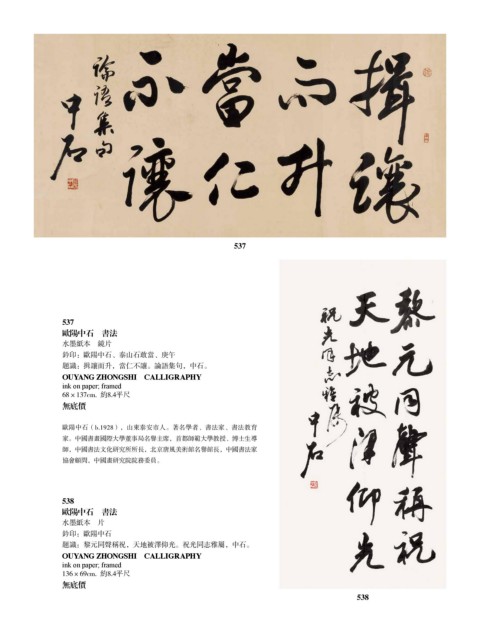 揖讓
而升
當仁
不讓
論語集句
中石
537
537
歐陽中石　書法
水墨紙本　鏡片
鈐印：歐陽中石、泰山石敢當、庚午
題識：揖讓而升，當仁不讓。論語集句，中石。
OUYANG ZHONGSHI　CALLIGRAPHY
ink on paper; framed
68 × 137cm. 約8.4平尺
無底價
歐陽中石（b.1928），山東泰安市人。著名學者、書法家、書法教育
家。中國書畫國際大學董事局名譽主席，首都師範大學教授、博士生導
師，中國書法文化研究所所長，北京唐風美術館名譽館長，中國書法家
協會顧問，中國畫研究院院務委員。
538
歐陽中石　書法
水墨紙本　片
鈐印：歐陽中石
題識：黎元同聲稱祝，天地被澤仰光。祝光同志雅屬，中石。
OUYANG ZHONGSHI　CALLIGRAPHY
ink on paper; framed
136 × 69cm. 約8.4平尺
無底價
黎元同聲稱祝
天地被澤仰光
祝光同志雅屬
中石
538